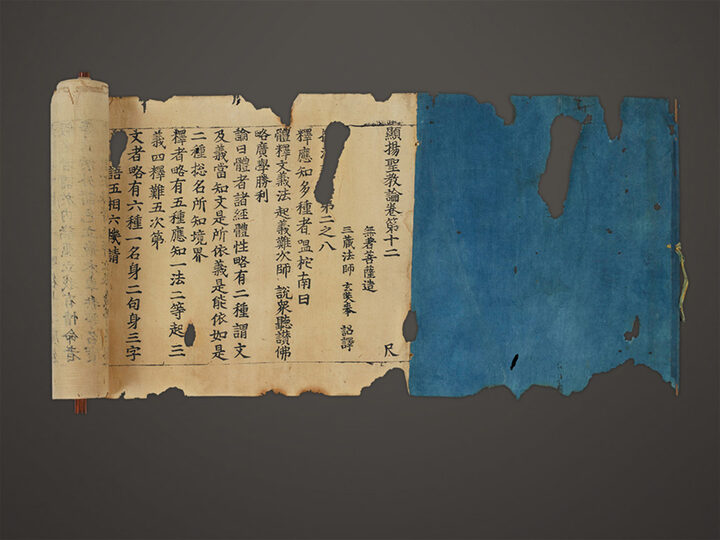 顯揚聖教論卷第十二
無著菩薩造
三藏法師玄奘奉 詔譯 尺
第二之八
釋應知多種者嗢柁南曰
體釋文義法 起義難次師 說衆聽讃佛
略廣學勝利
論曰體者諸經體性略有二種謂文
及義當知文是所依義是能依如是
二種捴名所知境界
釋者略有五種應知一法二等起三
義四釋難五次第
文者略有六種一名身二句身三字
語五相六機請